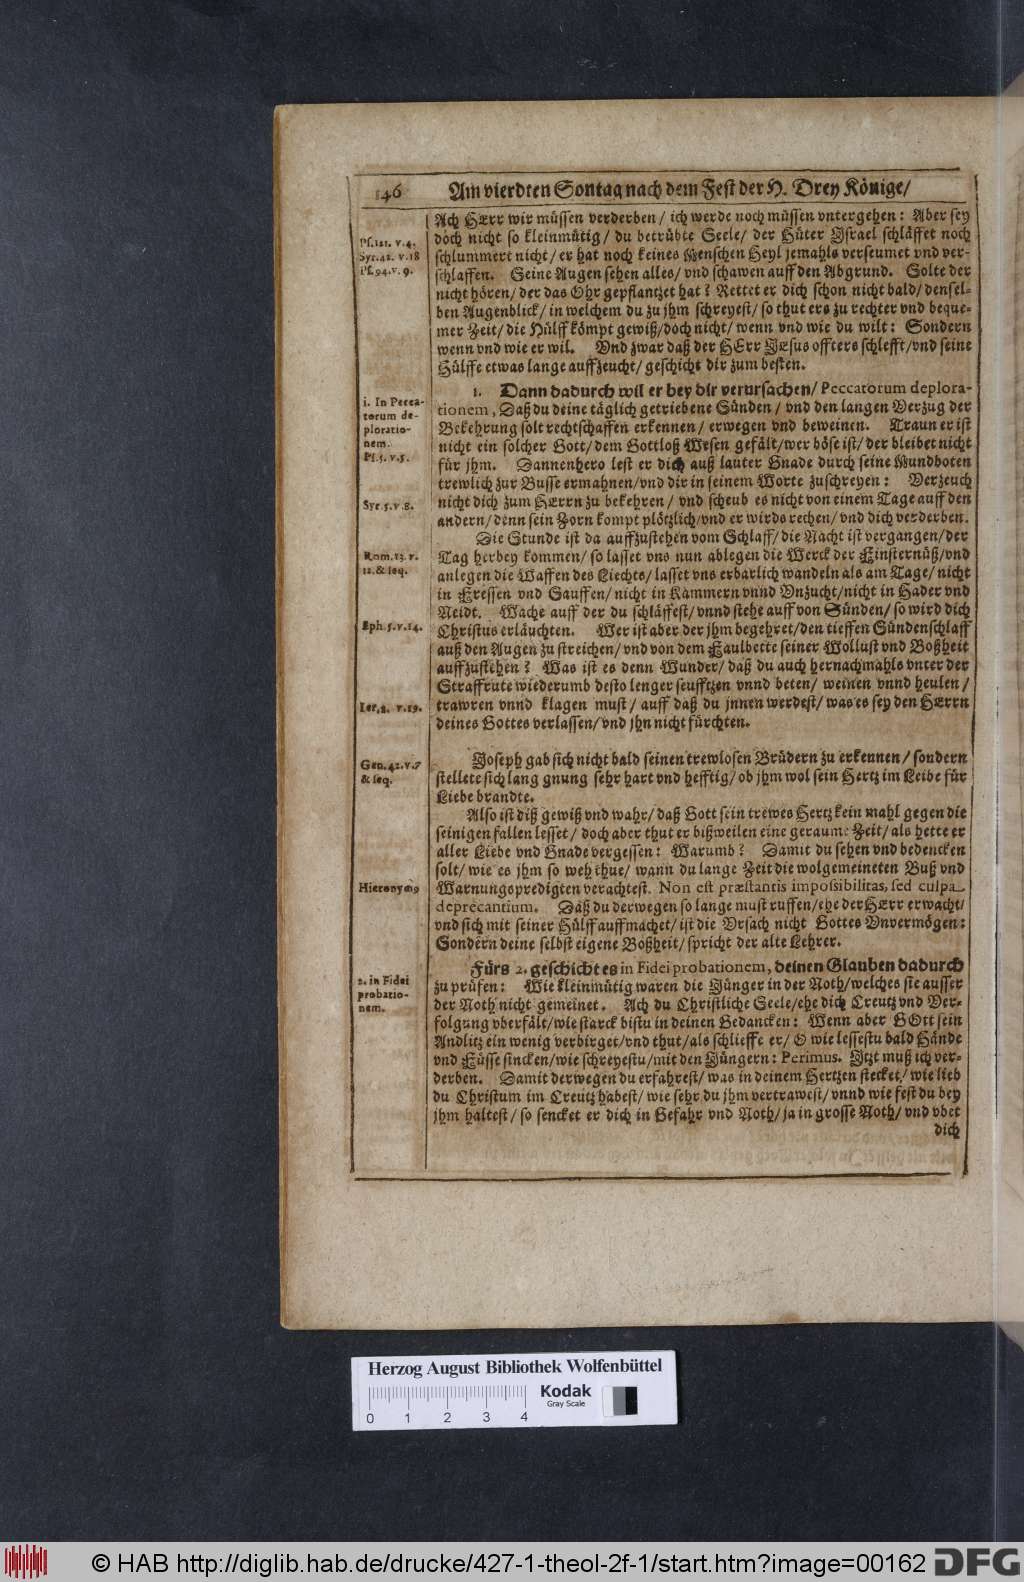 146 Am vierdten Sontag nach dem Fest der H. Drey Könige/
Ach HErr wir müssen verderben/ ich werde noch müssen vntergehen: Aber sey
doch nicht so kleinmütig/ du betrübte Seele/ der Hüter Jsrael schläffet noch
schlummert nicht/ er hat noch keines Menschen Heyl jemahls verseumet vnd ver-
schlaffen. Seine Augen sehen alles/ vnd schawen auff den Abgrund. Solte der
nicht hören/ der das Ohr gepflantzet hat? Rettet er dich schon nicht bald/ densel-
ben Augenblick/ in welchem du zu jhm schreyest/ so thut ers zu rechter vnd beque-
mer Zeit/ die Hülff kömpt gewiß/ doch nicht/ wenn vnd wie du wilt: Sondern
wenn vnd wie er wil. Vnd zwar daß der HErr JEsus offters schlefft/ vnd seine
Hülffe etwas lange auffzeucht/ geschicht dir zum besten.
Ps. 121. v. 4.
Syr. 42. v. 18
Ps. 94. v. 9.
1. Dann dadurch wil er bey dir verursachen/ Peccatorum deplora-
tionem, Daß du deine täglich getriebene Sünden/ vnd den langen Verzug der
Bekehrung solt rechtschaffen erkennen/ erwegen vnd beweinen. Traun er ist
nicht ein solcher Gott/ dem Gottloß Wesen gefält/ wer böse ist/ der bleibet nicht
für jhm. Dannenhero lest er dich auß lauter Gnade durch seine Mundboten
trewlich zur Busse ermahnen/ vnd dir in seinem Worte zuschreyen: Verzeuch
nicht dich zum HErrn zu bekehren/ vnd scheub es nicht von einem Tage auff den
andern/ denn sein Zorn kompt plötzlich/ vnd er wirds rechen/ vnd dich verderben.
1. In Pecca-
torum de-
ploratio-
nem.
Ps. 5. v. 5.
Syr. 5. v. 8.
Die Stunde ist da auffzustehen vom Schlaff/ die Nacht ist vergangen/ der
Tag herbey kommen/ so lasset vns nun ablegen die Werck der Finsternüß/ vnd
anlegen die Waffen des Liechts/ lasset vns erbarlich wandeln als am Tage/ nicht
in Fressen vnd Sauffen/ nicht in Kammern vnnd Vnzucht/ nicht in Hader vnd
Neidt. Wache auff der du schläffest/ vnnd stehe auff von Sünden/ so wird dich
Christus erläuchten. Wer ist aber der jhm begehret/ den tieffen Sündenschlaff
auß den Augen zu streichen/ vnd von dem Faulbette seiner Wollust vnd Boßheit
auffzustehen? Was ist es denn Wunder/ daß du auch hernachmahls vnter der
Straffrute wiederumb desto lenger seufftzen vnnd beten/ weinen vnnd heulen/
trawren vnnd klagen must/ auff daß du jnnen werdest/ was es sey den HErrn
deines Gottes verlassen/ vnd jhn nicht fürchten.
Rom. 13. v.
12. & seq.
Eph. 5. v. 14.
Ier. 2. v. 19.
Joseph gab sich nicht bald seinen trewlosen Brüdern zu erkennen/ sondern
stellete sich lang gnung sehr hart vnd hefftig/ ob jhm wol sein Hertz im Leibe für
Liebe brandte.
Gen. 42. v. 7
& seq.
Also ist diß gewiß vnd wahr/ daß Gott sein trewes Hertz kein mahl gegen die
seinigen fallen lesset/ doch aber thut er bißweilen eine geraume Zeit/ als hette er
aller Liebe vnd Gnade vergessen: Warumb? Damit du sehen vnd bedencken
solt/ wie es jhm so weh thue/ wann du lange Zeit die wolgemeineten Buß vnd
Warnungspredigten verachtest. Non est præstantis impossibilitas, sed culpa
deprecantium. Daß du derwegen so lange must ruffen/ ehe der HErr erwacht/
vnd sich mit seiner Hülff auffmachet/ ist die Vrsach nicht Gottes Vnvermögen:
Sondern deine selbst eigene Boßheit/ spricht der alte Lehrer.
Hieronymꝰ
Fürs 2. geschicht es in Fidei probationem, deinen Glauben dadurch
zu prüfen: Wie kleinmütig waren die Jünger in der Noth/ welches sie ausser
der Noth nicht gemeinet. Ach du Christliche Seele/ ehe dich Creutz vnd Ver-
folgung vberfält/ wie starck bistu in deinen Gedancken: Wenn aber GOtt sein
Andlitz ein wenig verbirget/ vnd thut/ als schlieffe er/ O wie lessestu bald Hände
vnd Füsse sincken/ wie schreyestu/ mit den Jüngern: Perimus. Jtzt muß ich ver-
derben. Damit derwegen du erfahrest/ was in deinem Hertzen stecket/ wie lieb
du Christum im Creutz habest/ wie sehr du jhm vertrawest/ vnnd wie fest du bey
jhm haltest/ so sencket er dich in Gefahr vnd Noth/ ja in grosse Noth/ vnd vbet
dich
2. in Fidei
probatio-
nem.
Herzog August Bibliothek Wolfenbüttel
Kodak
Gray Scale
0 1 2 3 4
© HAB http://diglib.hab.de/drucke/427-1-theol-2f-1/start.htm?image=00162 DFG